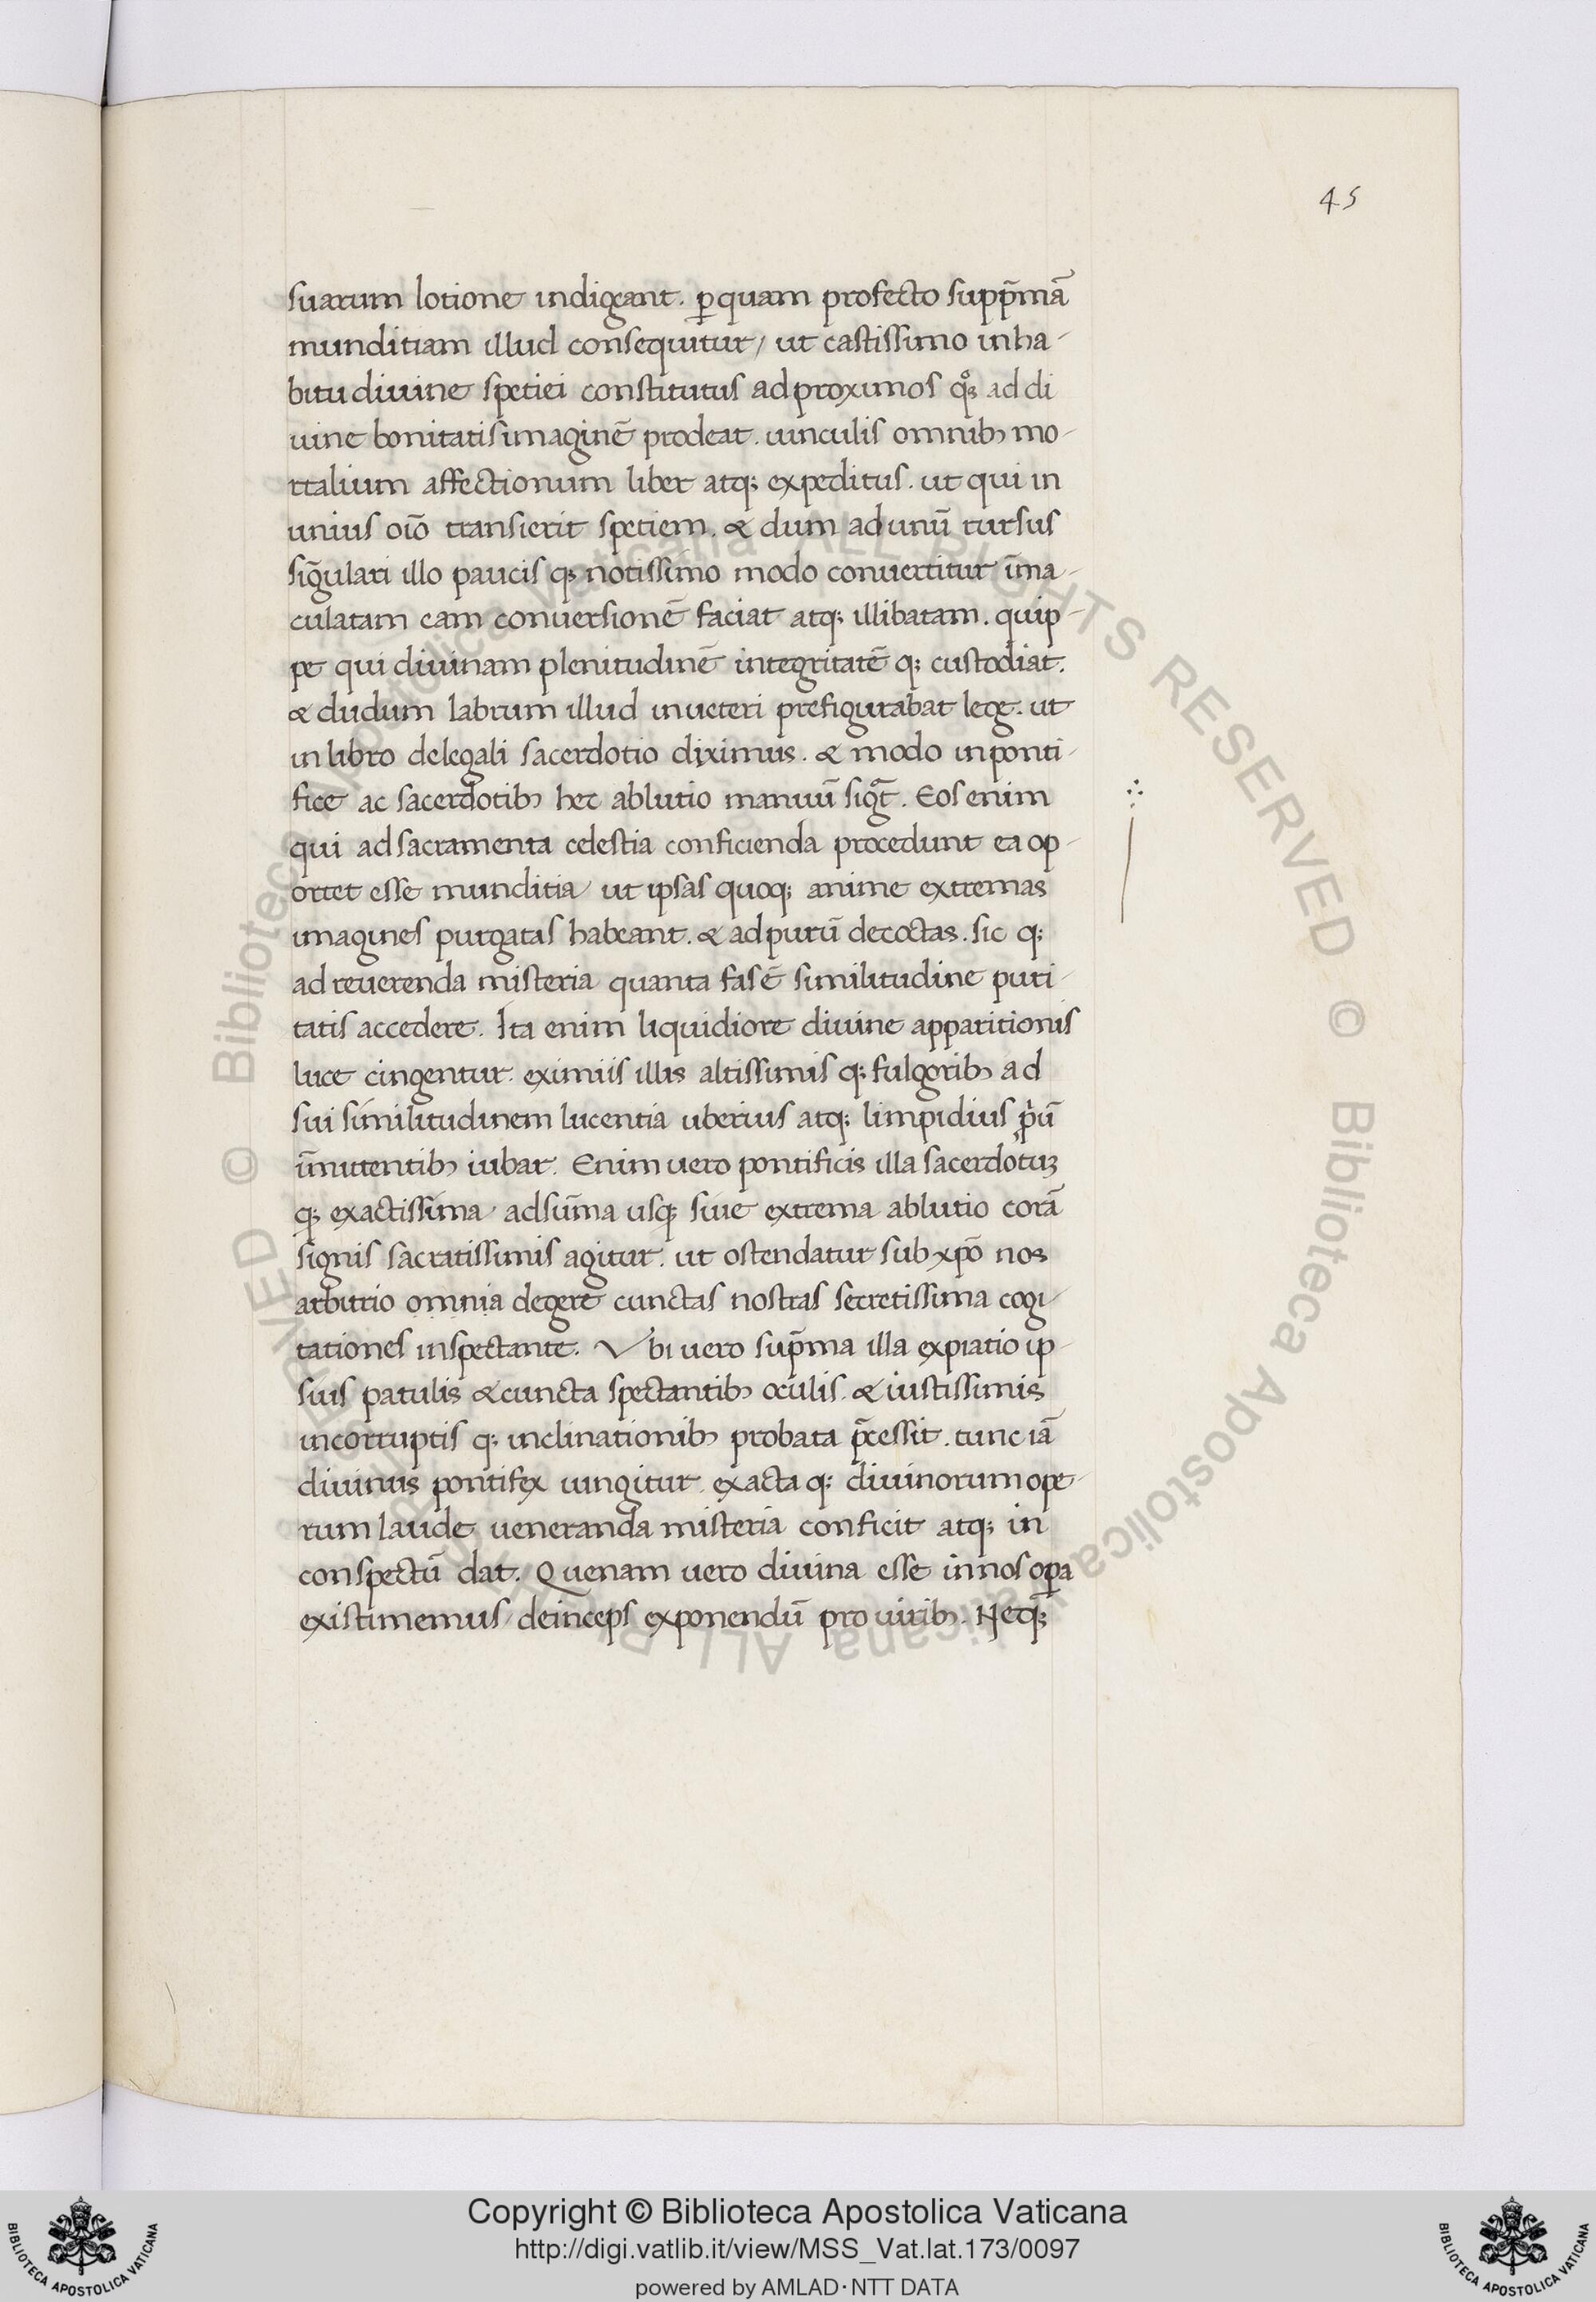 45
suarum lotione indigeant. ꝑ quam profecto supp̄mā
munditiam illud consequitur / ut castissimo in ha-
bitu diuine spetiei constitutus ad proximos qͦꝫ ad di
uine bonitatis imaginē prodeat. uinculis omnibꝫ mo-
rtalium affectionum liber atqꝫ expeditus. ut qui in
unius oīo transierit spetiem. & dum ad unū rursus
sīgulari illo paucis qꝫ notissimo modo conuertitur īma-
culatam eam conuersionē faciat atqꝫ illibatam. quip-
pe qui diuinam plenitudinē integritatē qꝫ custodiat.
& dudum labrum illud in ueteri prefigurabat lege. ut
in libro de legali sacerdotio diximus. & modo in ponti-
fice ac sacerdotibꝫ hec ablutio manuū sigᵃ̄t. Eos enim
qui ad sacramenta celestia conficienda procedunt ea op-
ortet esse munditia / ut ipsas quoqꝫ anime extremas
imagines purgatas habeant. & ad purū decoctas. sic qꝫ
ad reuerenda misteria quanta fas ē similitudine puri-
tatis accedere. Ita enim liquidiore diuine apparitionis
luce cingentur. eximiis illis altissimis qꝫ fulgoribꝫ ad
sui similitudinem lucentia uberius atqꝫ limpidius pͥuū
īmittentibꝫ iubar. Enim uero pontificis illa sacerdotuꝫ
qꝫ exactissima / ad sūma usqꝫ siue extrema ablutio corā
signis sacratissimis agitur. ut ostendatur sub xpō nos
arbitrio omnia degere cunctas nostras secretissima cogi-
tationes inspectante. Vbi uero sup̄ma illa expiatio ip-
sius patulis & cuncta spectantibꝫ oculis. & iustissimis
incorruptis qꝫ inclinationibꝫ probata p̄cessit. tunc iā
diuinus pontifex iungitur. exacta qꝫ diuinorum ope-
rum laude ueneranda misteria conficit atqꝫ in
conspectū dat. Quenam uero diuina esse in nos oꝑa
existimemus / deinceps exponendū pro uiribꝫ. Neqꝫ
Copyright © Biblioteca Apostolica Vaticana
http://digi.vatlib.it/view/MSS_Vat.lat.173/0097
powered by AMLAD·NTT DATA
BIBLIOTECA APOSTOLICA VATICANA
BIBLIOTECA APOSTOLICA VATICANA